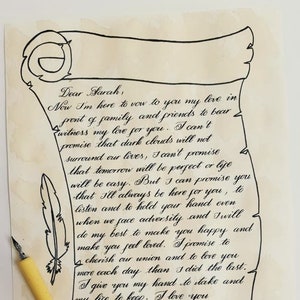 Dear Sarah,
Now I'm here to vow to you my love in
front of family and friends to bear
witness my love for you. I can't
promise that dark clouds will not
surround our lives, I can't promise
that tomorrow will be perfect or life
will be easy. But I can promise you
that I'll always be here for you, to
listen and to hold your hand even
when we face adversity and I will
do my best to make you happy and
make you feel loved. I promise to
cherish our union and to love you
more each day than I did the last.
I give you my hand to shake and
my life to keep. I love you